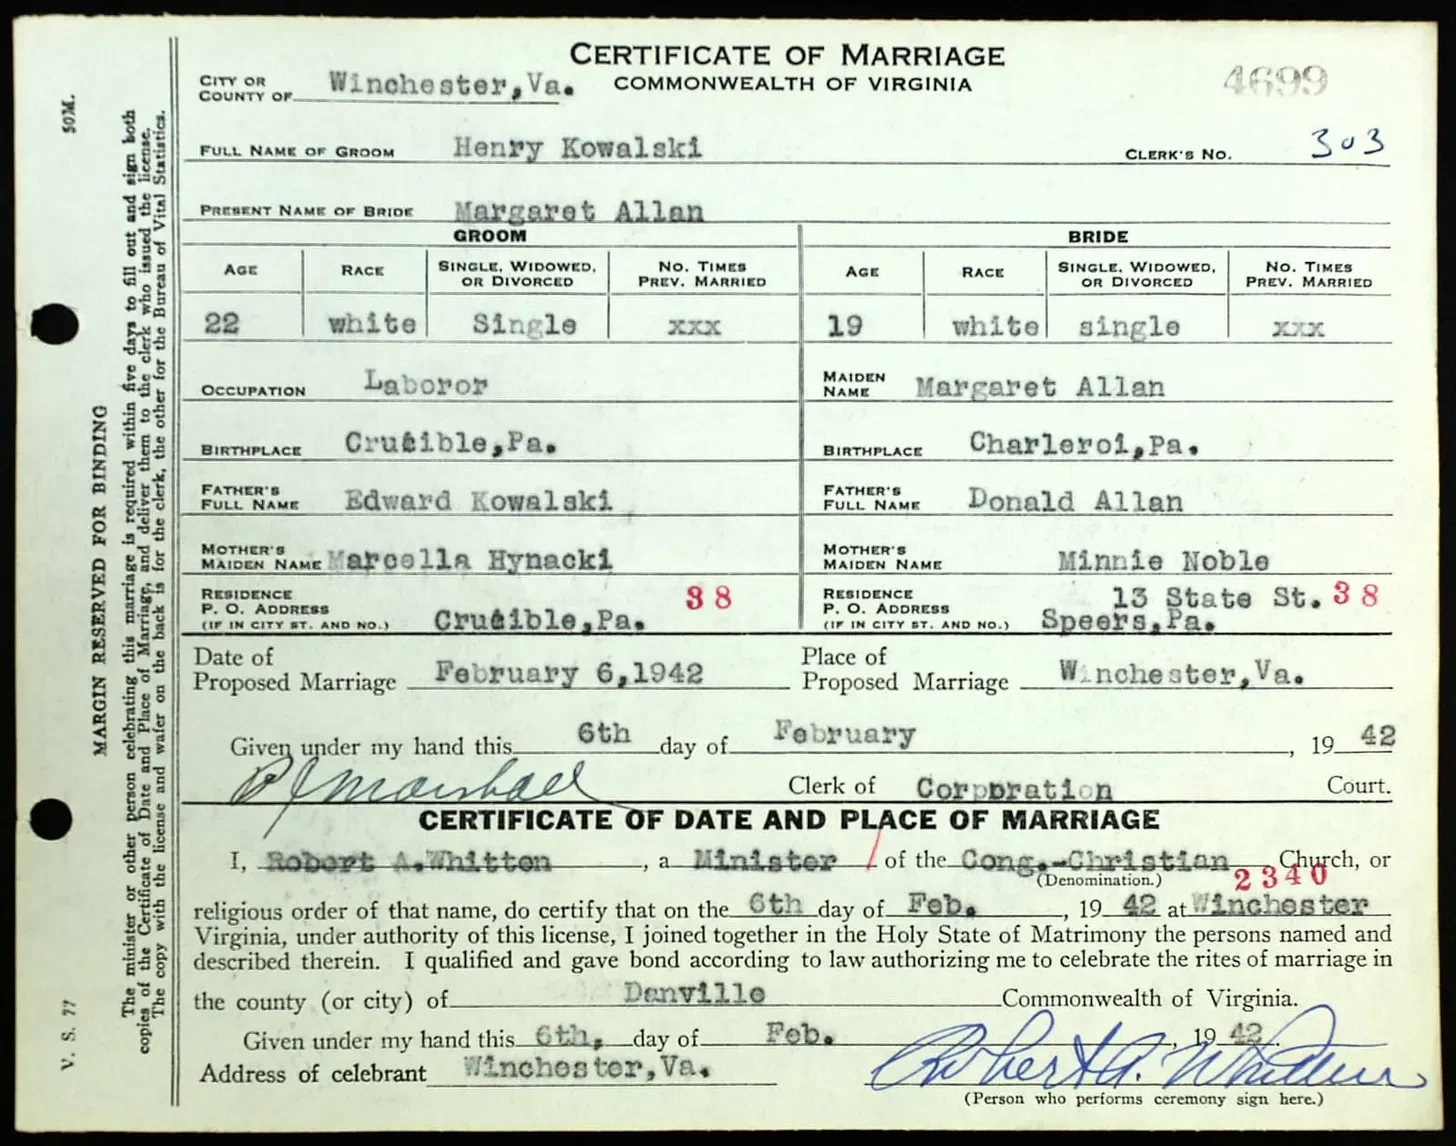 CERTIFICATE OF MARRIAGE
COMMONWEALTH OF VIRGINIA
4699
CITY OR
COUNTY OF Winchester,Va.
FULL NAME OF GROOM Henry Kowalski
CLERK'S NO. 303
PRESENT NAME OF BRIDE Margaret Allan
GROOM BRIDE
AGE RACE SINGLE, WIDOWED, OR DIVORCED NO. TIMES PREV. MARRIED AGE RACE SINGLE, WIDOWED, OR DIVORCED NO. TIMES PREV. MARRIED
22 white Single xxx 19 white single xxx
OCCUPATION Laboror MAIDEN NAME Margaret Allan
BIRTHPLACE Crucible,Pa. BIRTHPLACE Charleroi,Pa.
FATHER'S FULL NAME Edward Kowalski FATHER'S FULL NAME Donald Allan
MOTHER'S MAIDEN NAME Marcella Hynacki MOTHER'S MAIDEN NAME Minnie Noble
RESIDENCE 38 RESIDENCE 13 State St. 38
P. O. ADDRESS P. O. ADDRESS
(IF IN CITY ST. AND NO.) Crucible,Pa. (IF IN CITY ST. AND NO.) Speers,Pa.
Date of Place of
Proposed Marriage February 6,1942 Proposed Marriage Winchester,Va.
Given under my hand this 6th day of February, 19 42
P J Marshall Clerk of Corporation Court.
CERTIFICATE OF DATE AND PLACE OF MARRIAGE
I, Robert A.Whitten, a Minister / of the Cong.-Christian Church, or
(Denomination.) 2340
religious order of that name, do certify that on the 6th day of Feb., 19 42 at Winchester
Virginia, under authority of this license, I joined together in the Holy State of Matrimony the persons named and
described therein. I qualified and gave bond according to law authorizing me to celebrate the rites of marriage in
the county (or city) of Danville Commonwealth of Virginia.
Given under my hand this 6th, day of Feb., 19 42.
Address of celebrant Winchester,Va. Robert A. Whitten
(Person who performs ceremony sign here.)
50M.
MARGIN RESERVED FOR BINDING
V. S. 77
The minister or other person celebrating this marriage is required within five days to fill out and sign both
copies of the Certificate of Date and Place of Marriage, and deliver them to the clerk who issued the license.
The copy with the license and wafer on the back is for the clerk, the other for the Bureau of Vital Statistics.